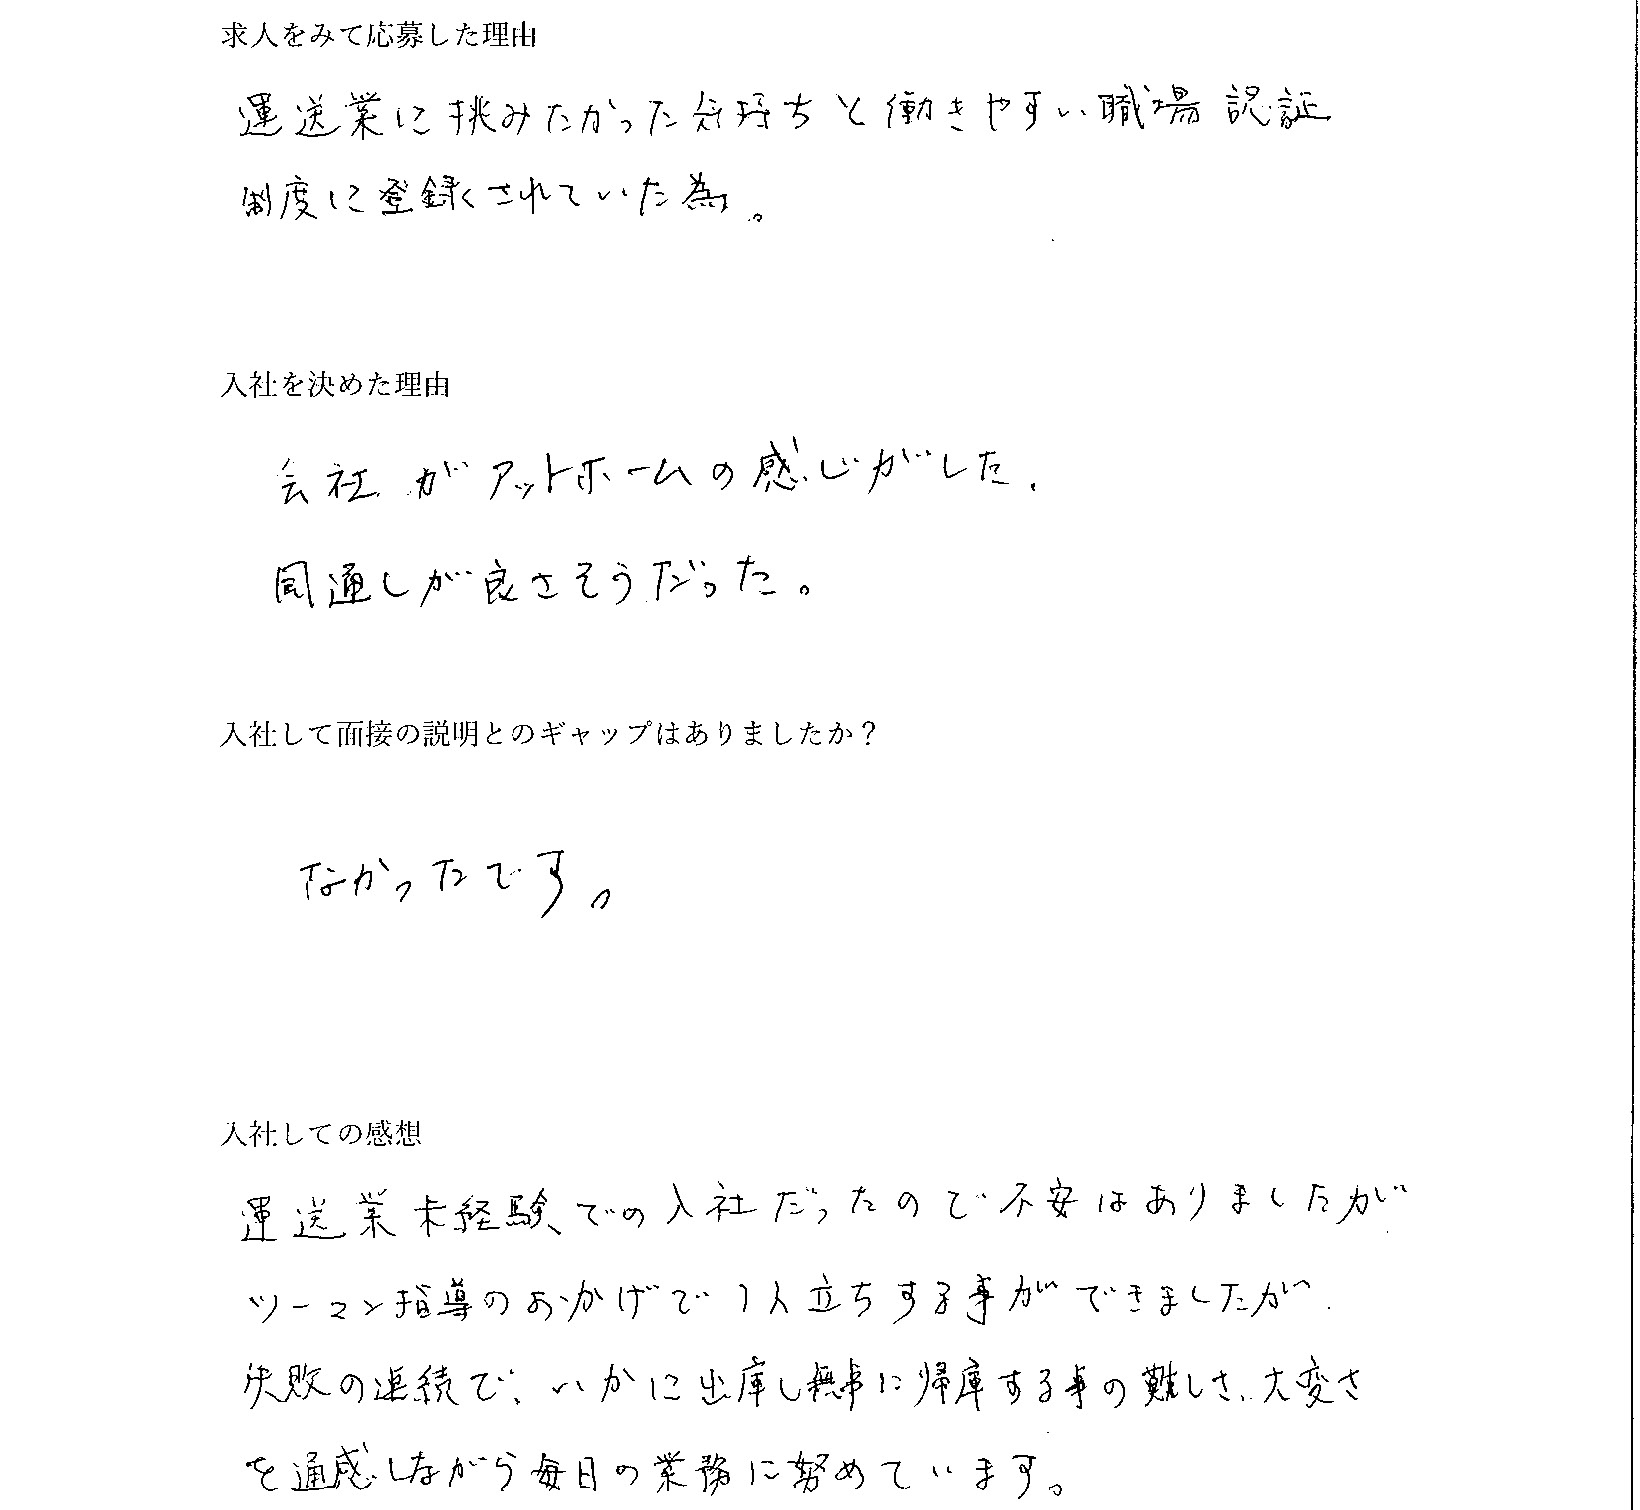 求人をみて応募した理由
運送業に挑みたかった気持ちと働きやすい職場認証
制度に登録されていた為。
入社を決めた理由
会社がアットホームの感じがした、
風通しが良さそうだった。
入社して面接の説明とのギャップはありましたか？
なかったです。
入社しての感想
運送業未経験での入社だったので不安はありましたが
ツーマン指導のおかげで1人立ちする事ができましたが
失敗の連続で、いかに出庫し無事に帰庫する事の難しさ、大変さ
を通感しながら毎日の業務に努めています。